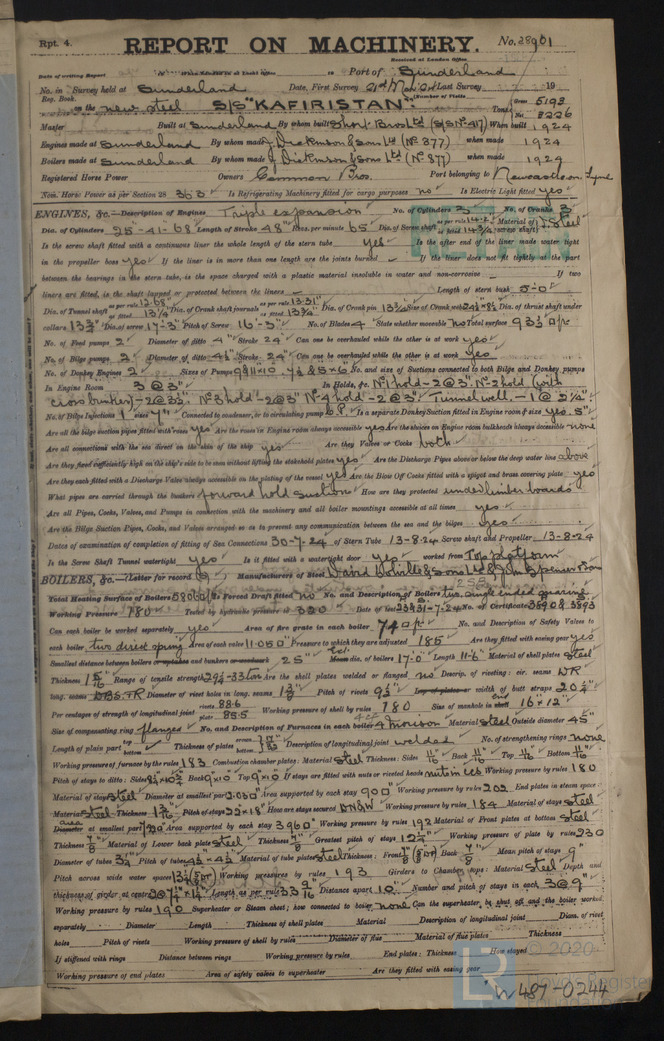 Rpt. 4.
REPORT ON MACHINERY.
No. 28901
Received at London Office
Date of writing Report 19 When handed in at Local Office to Port of Sunderland
No. in Survey held at Sunderland Date, First Survey Last Survey 19
Reg. Book. (Number of Visits
on the new steel S/S "KAFIRISTAN" Tons Gross 5193 Net 3226
Master Built at Sunderland By whom built Short Bros Ltd (S/S No 417) When built 1924
Engines made at Sunderland By whom made J Dickinson & Sons Ltd (No 877) when made 1924
Boilers made at Sunderland By whom made J Dickinson & Sons Ltd (No 877) when made 1924
Registered Horse Power Owners Common Bros. Port belonging to Newcastle on Tyne
Nom. Horse Power as per Section 28 363 Is Refrigerating Machinery fitted for cargo purposes no Is Electric Light fitted yes
ENGINES, &c.—Description of Engines Triple expansion No. of Cylinders 3 No. of Cranks 3
Dia. of Cylinders 25-41-68 Length of Stroke 48" Revs. per minute 65 Dia. of Screw shaft as per rule 14.2 as fitted 14 3/4 Material of screw shaft Steel
Is the screw shaft fitted with a continuous liner the whole length of the stern tube yes Is the after end of the liner made water tight
in the propeller boss yes If the liner is in more than one length are the joints burned – If the liner does not fit tightly at the part
between the bearings in the stern tube, is the space charged with a plastic material insoluble in water and non-corrosive – If two
liners are fitted, is the shaft lapped or protected between the liners – Length of stern bush 5-0"
Dia. of Tunnel shaft as per rule 12.68 as fitted 13 1/4 Dia. of Crank shaft journals as per rule 13.31 as fitted 13 3/4 Dia. of Crank pin 13 3/4 Size of Crank web Dia. of thrust shaft under
collars 13 3/4 Dia. of screw 17-3" Pitch of Screw 16-3" No. of Blades 4 State whether moveable no Total surface 93 1/2 □/c
No. of Feed pumps 2 Diameter of ditto 4" Stroke 24" Can one be overhauled while the other is at work yes
No. of Bilge pumps 2 Diameter of ditto 4 1/2" Stroke 24" Can one be overhauled while the other is at work yes
No. of Donkey Engines 2 Sizes of Pumps No. and size of Suctions connected to both Bilge and Donkey pumps
In Engine Room 3 @ 3" In Holds, &c. No 1 hold – 2 @ 3". No 2 hold (with
cross bunker) – 2 @ 3 1/2. No 3 hold – 2 @ 3" No 4 hold – 2 @ 3". Tunnel well. – 1 @ 2 1/2"
No. of Bilge Injections 1 sizes 7" Connected to condenser, or to circulating pump C.P. Is a separate Donkey Suction fitted in Engine room & size yes. 5"
Are all the bilge suction pipes fitted with roses yes Are the roses in Engine room always accessible yes Are the sluices on Engine room bulkheads always accessible none
Are all connections with the sea direct on the skin of the ship yes Are they Valves or Cocks both
Are they fixed sufficiently high on the ship's side to be seen without lifting the stokehold plates yes Are the Discharge Pipes above or below the deep water line above
Are they each fitted with a Discharge Valve always accessible on the plating of the vessel yes Are the Blow Off Cocks fitted with a spigot and brass covering plate yes
What pipes are carried through the bunkers forward hold suctions How are they protected under limber boards
Are all Pipes, Cocks, Valves, and Pumps in connection with the machinery and all boiler mountings accessible at all times yes
Are the Bilge Suction Pipes, Cocks, and Valves arranged so as to prevent any communication between the sea and the bilges yes
Dates of examination of completion of fitting of Sea Connections 30-7-24 of Stern Tube 13-8-24 Screw shaft and Propeller 13-8-24
Is the Screw Shaft Tunnel watertight yes Is it fitted with a watertight door yes worked from Top platform
BOILERS, &c.—(Letter for record S) Manufacturers of Steel David Colville & Sons Ltd & John Spencer & Sons
Total Heating Surface of Boilers Is Forced Draft fitted no No. and Description of Boilers two Single ended
Working Pressure 180 Tested by hydraulic pressure to 320 Date of test No. of Certificate 3590 & 3593
Can each boiler be worked separately yes Area of fire grate in each boiler 74 □/c No. and Description of Safety Valves to
each boiler two direct spring Area of each valve 11.050" Pressure to which they are adjusted 185 Are they fitted with easing gear yes
Smallest distance between boilers or uptakes and bunkers or woodwork 25" Mean dia. of boilers 17-0" Length 11-6" Material of shell plates Steel
Thickness Range of tensile strength Are the shell plates welded or flanged no Descrip. of riveting: cir. seams DR
long. seams DBS.TR Diameter of rivet holes in long. seams Pitch of rivets Lap of plates or width of butt straps 20 1/4"
Per centages of strength of longitudinal joint rivets 88.6 plate 85.5 Working pressure of shell by rules 180 Size of manhole in shell 16" x 12"
Size of compensating ring flanged No. and Description of Furnaces in each boiler 4 Morison Material steel Outside diameter 45"
Length of plain part top bottom Thickness of plates crown bottom Description of longitudinal joint welded No. of strengthening rings none
Working pressure of furnace by the rules 183 Combustion chamber plates: Material Steel Thickness: Sides Back Top Bottom
Pitch of stays to ditto: Sides Back 9" x 10" Top 9" x 10" If stays are fitted with nuts or riveted heads nuts in cch Working pressure by rules 180
Material of stays Steel Diameter at smallest part 2.030" Area supported by each stay 900" Working pressure by rules 202 End plates in steam space:
Material Steel Thickness Pitch of stays 22" x 18" How are stays secured DN&W Working pressure by rules 184 Material of stays steel
Diameter at smallest part Area supported by each stay 3960" Working pressure by rules 192 Material of Front plates at bottom Steel
Thickness 7/8" Material of Lower back plate Steel Thickness 7/8" Greatest pitch of stays Working pressure of plate by rules 230
Diameter of tubes 3 1/4" Pitch of tubes 4 1/2" x 4 1/2" Material of tube plates Steel Thickness: Front Back Mean pitch of stays 9"
Pitch across wide water spaces Working pressures by rules 193 Girders to Chamber tops: Material Steel Depth and
thickness of girder at centre Length as per rule Distance apart 10" Number and pitch of stays in each 3 @ 9"
Working pressure by rules 190 Superheater or Steam chest; how connected to boiler none Can the superheater be shut off and the boiler worked
separately Diameter Length Thickness of shell plates Material Description of longitudinal joint Diam. of rivet
holes Pitch of rivets Working pressure of shell by rules Diameter of flue Material of flue plates Thickness
If stiffened with rings Distance between rings Working pressure by rules End plates: Thickness How stayed
Working pressure of end plates Area of safety valves to superheater Are they fitted with easing gear
© 2020
Lloyd's Register
Foundation
W487-0244